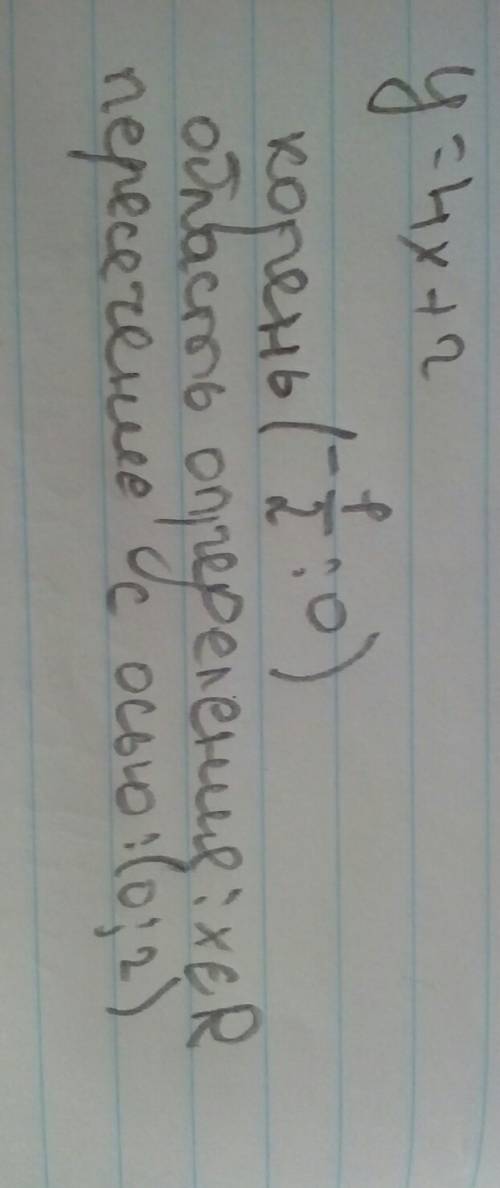 y = 4x + 2
корень (-1/2 ; 0)
область определения: x∈R
пересечение с осью: (0; 2)